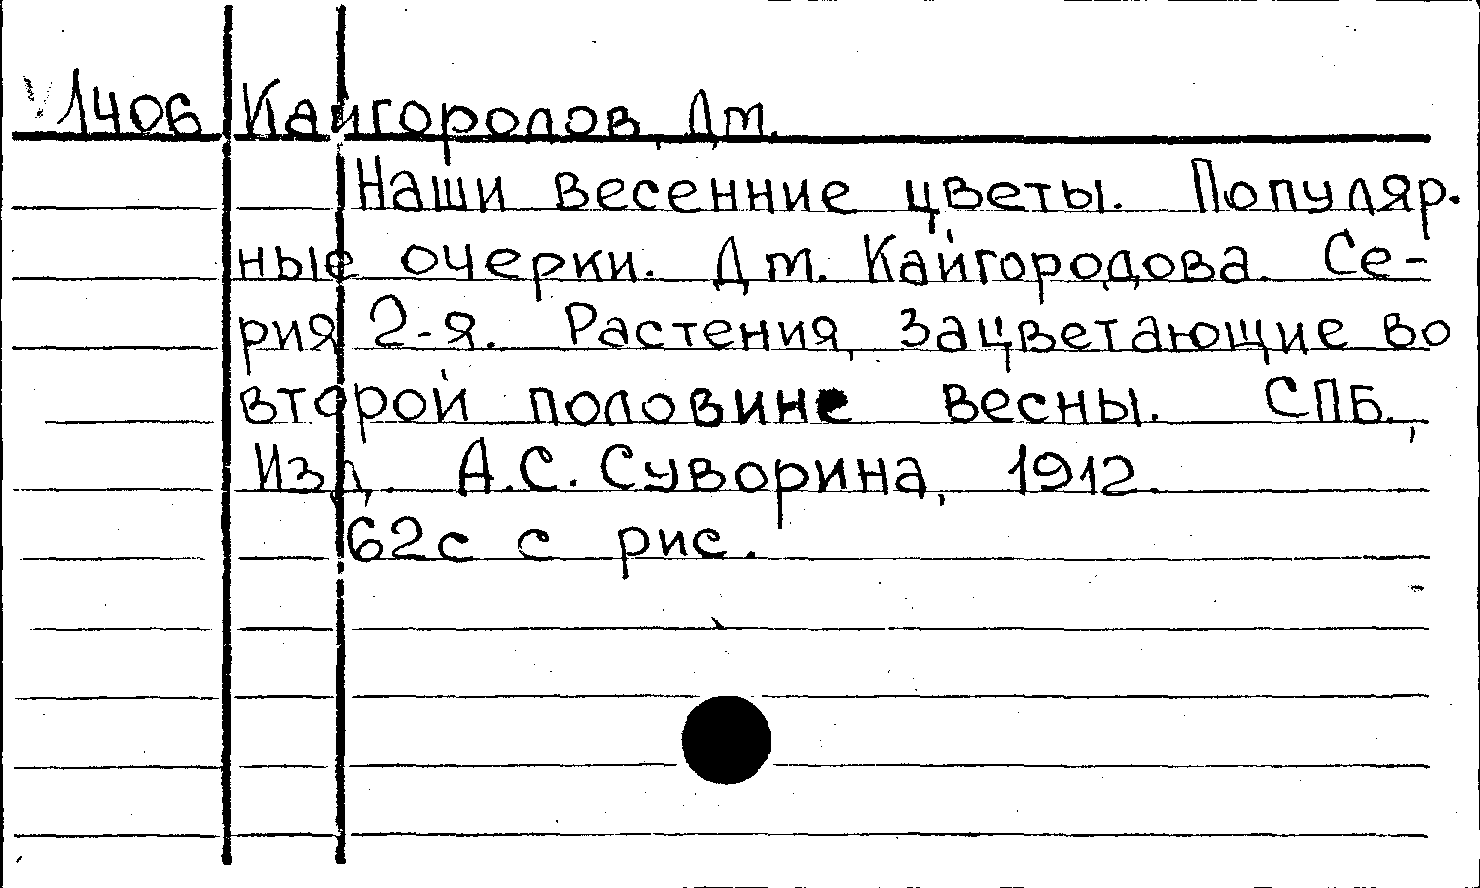 1406 Кайгородов, Дм.
Наши весенние цветы. Популяр-
ные очерки. Дм. Кайгородова. Се-
рия 2-я. Растения, зацветающие во
второй половине весны. СПБ.,
Изд. А.С. Суворина, 1912.
62с с рис.